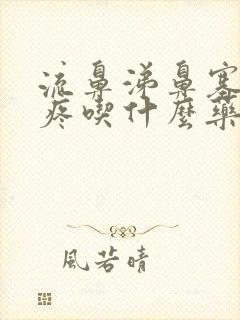 流鼻涕鼻塞
疼喫什麼藥
風若晴